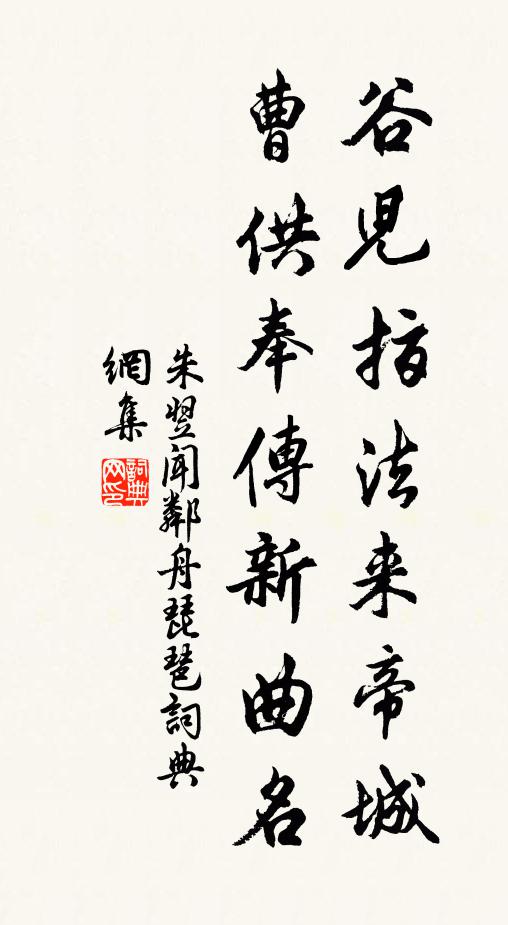 谷兒指法来帝城
曹供奉傳新曲名
朱翌聞鄰舟琵琶詞典
網集
詞典
网印